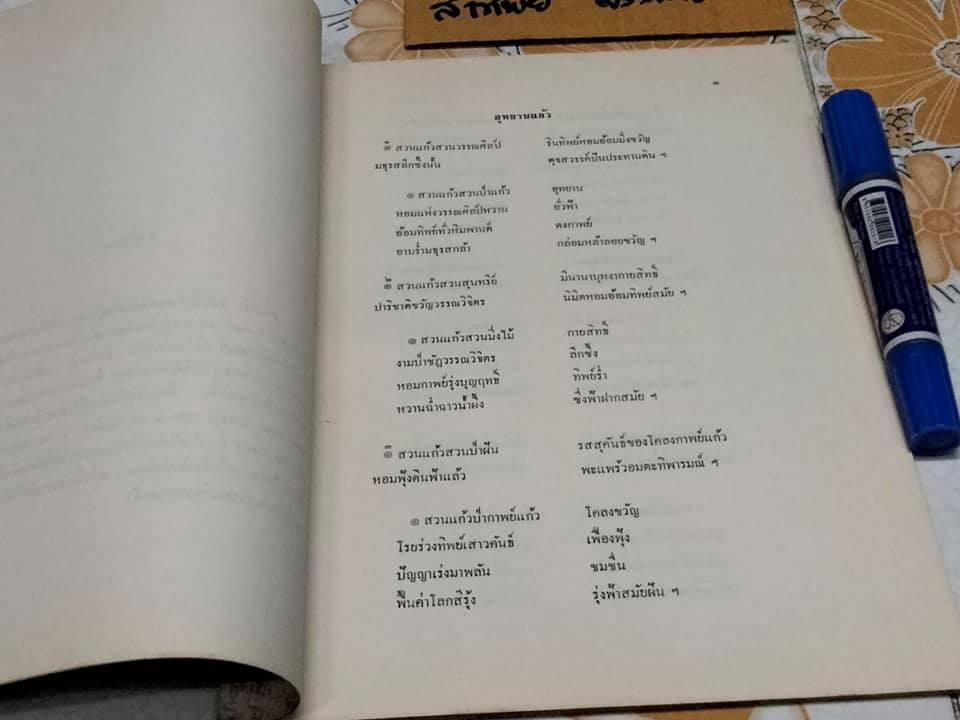 อุทยานแล้ว
๑ สวนแก้วสวนวรรณศิลป์ รินทิพย์หอมอ้อมมิ่งขวัญ
มธุรสลึกซึ้งนั้น ดุจสวรรค์ปั้นประทานดิน ฯ
๑ สวนแก้วสวนป่าแก้ว อุทยาน
หอมแห่งวรรณศิลป์หวาน ยั่วฟ้า
อ้อมทิพย์ทั่วหิมพานต์ ดงกาพย์
อาบร่ำมธุรสกล้า กล่อมหล้าลอยขวัญ ฯ
๒ สวนแก้วสวนสุนทรีย์ มีนานาบุหงากายสิทธิ์
ปาริชาติขวัญวรรณวิจิตร นิมิตหอมอ้อมทิพย์สมัย ฯ
๑ สวนแก้วสวนมิ่งไม้ กายสิทธิ์
งามป่าชัฏวรรณวิจิตร ลึกซึ้ง
หอมกาพย์รุ่งบุญฤทธิ์ ทิพย์ร่ำ
หวานฉ่ำฉาวน้ำผึ้ง ซึ่งฟ้าฝากสมัย ฯ
๓ สวนแก้วสวนป่าฝัน รสสุคันธ์ของโคลงกาพย์แก้ว
หอมฟุ้งดินฟ้าแล้ว พะแพร้วอมตะทิพารมณ์ ฯ
๑ สวนแก้วป่ากาพย์แก้ว โคลงขวัญ
โรยร่วงทิพย์เสาวคันธ์ เฟื่องฟุ้ง
ปัญญาเร่งมาพลัน ชมชื่น
ฟื้นค่าโลกสีรุ้ง รุ่งฟ้าสมัยฝัน ฯ